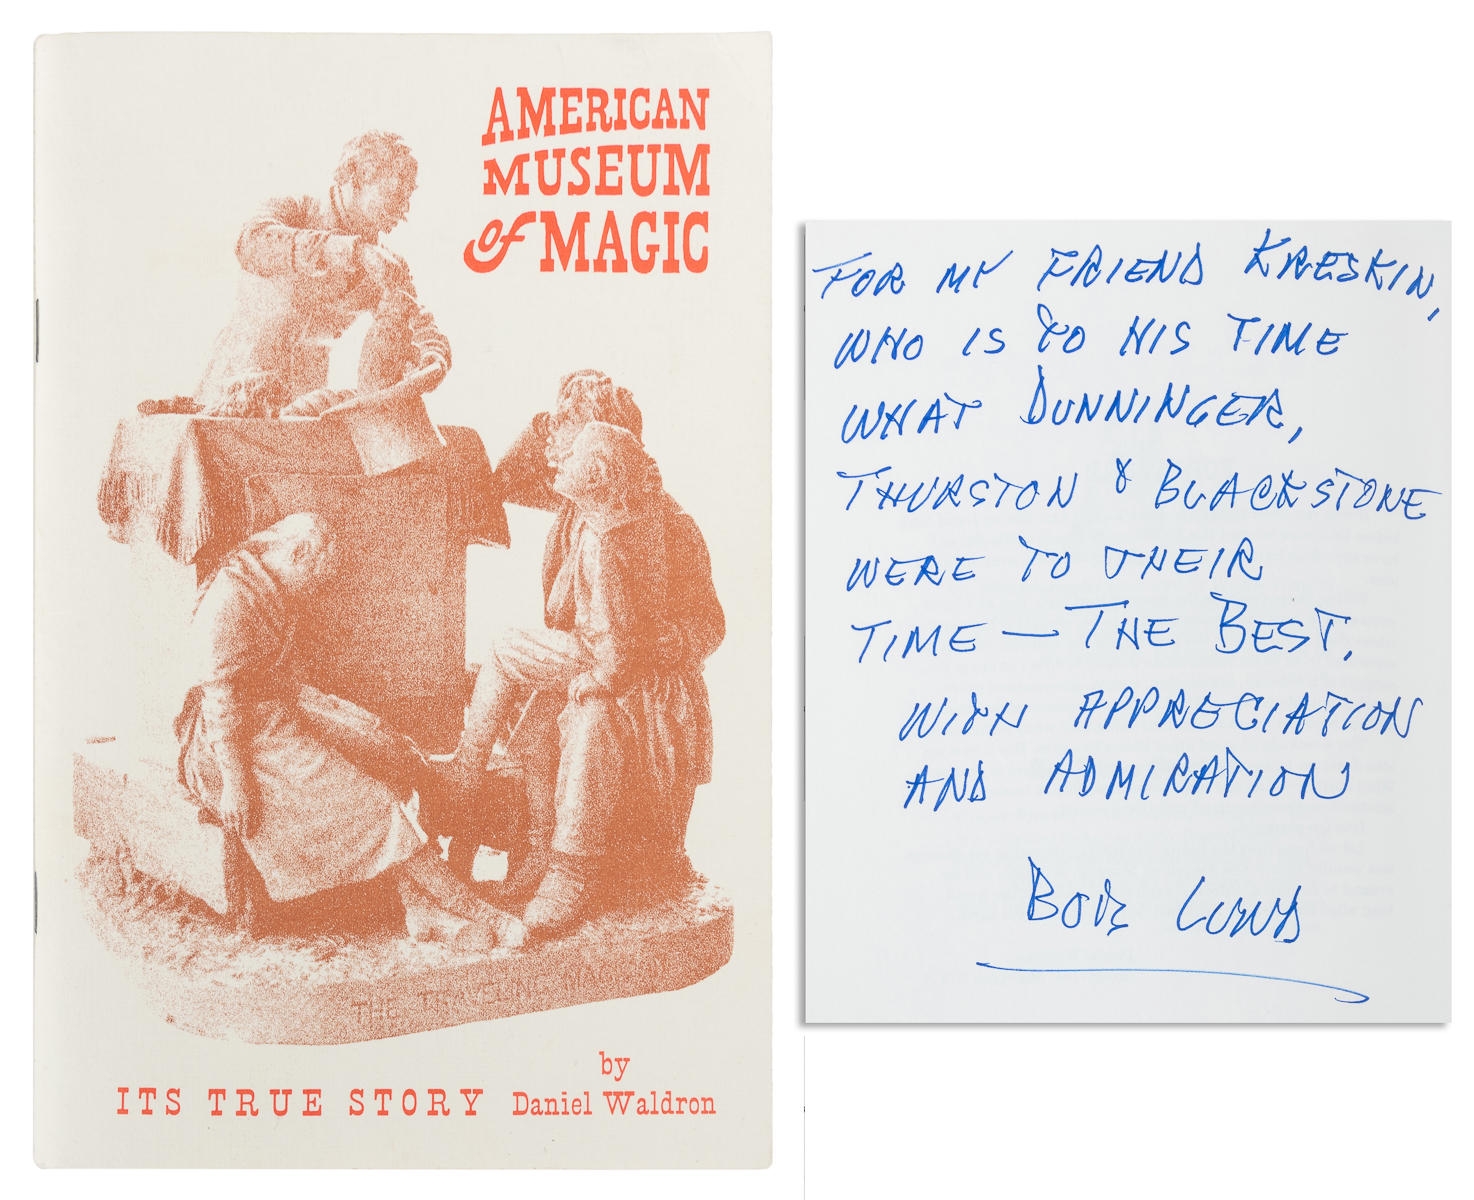 AMERICAN
MUSEUM
of MAGIC
THE TRAVELING
ITS TRUE STORY
by
Daniel Waldron
FOR MY FRIEND KRESKIN,
WHO IS TO HIS TIME
WHAT DUNNINGER,
THURSTON & BLACKSTONE
WERE TO THEIR
TIME — THE BEST.
WITH APPRECIATION
AND ADMIRATION
BOB LUND